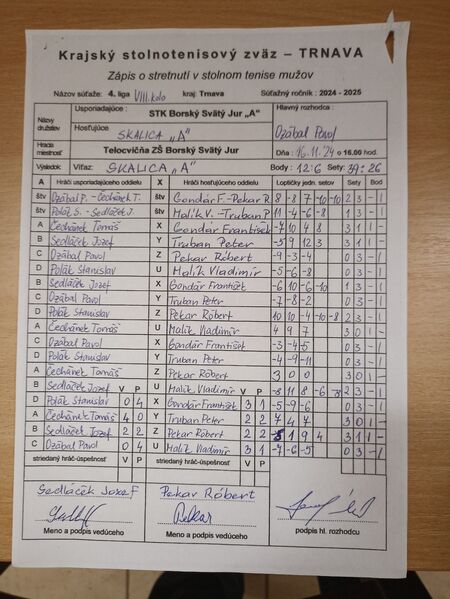 Krajský stolnotenisový zväz – TRNAVA
Zápis o stretnutí v stolnom tenise mužov
Názov súťaže: 4. liga VIII. kolo kraj: Trnava Súťažný ročník : 2024 - 2025
Názov družstiev Usporiadajúce : STK Borský Svätý Jur „A" Hlavný rozhodca :
Hosťujúce SKALICA „A" Ožábal Pavol
Hracia miestnosť Telocvičňa ZŠ Borský Svätý Jur Dňa : 16.11.24 o 16.00 hod.
Výsledok Víťaz: SKALICA „A" Body : 12:6 Sety: 39:26
A Hráči usporiadajúceho oddielu X Hráči hosťujúceho oddielu Loptičky jedn. setov Sety Bod
štv Ožábal P. - Čechánek T. štv Gondár F. - Pekar R. 2 3 - 1
štv Polák S. - Sedláček J. štv Malík V. - Truban P. 1 3 - 1
A Čechánek Tomáš X Gondár František 3 1 1 -
B Sedláček Jozef Y Truban Peter 3 1 1 -
C Ožábal Pavol Z Pekar Róbert -9 -3 -4 0 3 - 1
D Polák Stanislav U Malík Vladimír -5 -6 -8 0 3 - 1
B Sedláček Jozef X Gondár František 1 3 - 1
C Ožábal Pavol Y Truban Peter -7 -8 -2 0 3 - 1
D Polák Stanislav Z Pekar Róbert 10 10 -4 -10 -8 2 3 - 1
A Čechánek Tomáš U Malík Vladimír 4 9 7 3 0 1 -
C Ožábal Pavol X Gondár František -3 -4 -5 0 3 - 1
D Polák Stanislav Y Truban Peter -4 -9 -11 0 3 - 1
A Čechánek Tomáš Z Pekar Róbert 3 0 0 3 0 1 -
B Sedláček Jozef V P U Malík Vladimír V P 2 3 - 1
D Polák Stanislav 0 4 X Gondár František 3 1 -5 -9 -6 0 3 - 1
A Čechánek Tomáš 4 0 Y Truban Peter 2 2 7 4 7 3 0 1 -
B Sedláček Jozef 2 2 Z Pekar Róbert 2 2 3 1 1 -
C Ožábal Pavol 0 4 U Malík Vladimír 3 1 -4 -6 -5 0 3 - 1
striedaný hráč-úspešnosť V P striedaný hráč-úspešnosť V P
Sedláček Jozef Pekar Róbert
Meno a podpis vedúceho Meno a podpis vedúceho podpis hl. rozhodcu